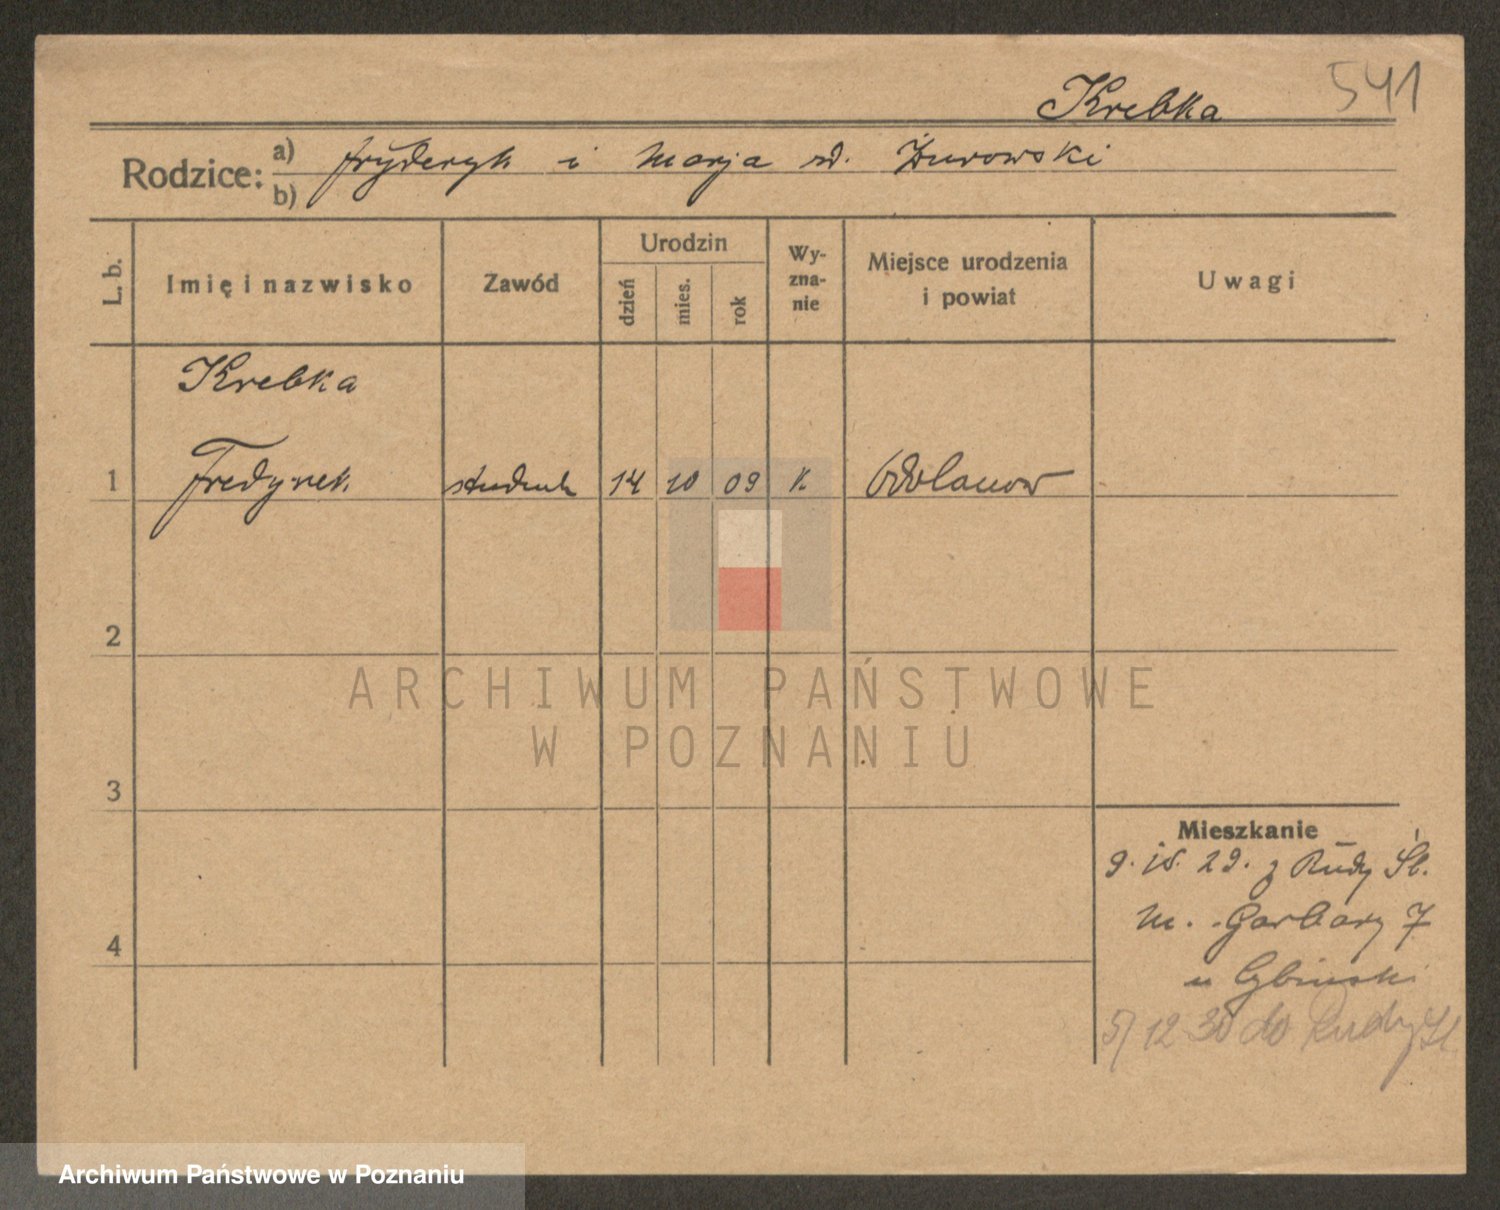 Krebka 541
Rodzice: a) Fryderyk i Marja zd. Żurowski
b)
L. b.
Imię i nazwisko
Zawód
Urodzin
dzień
mies.
rok
Wy-
zna-
nie
Miejsce urodzenia
i powiat
Uwagi
Krebka
1 Fredynek student 14 10 09 K Odolanow
2
3
4
ARCHIWUM PAŃSTWOWE
W POZNANIU
Mieszkanie
9. 10. 29. z Rudy Śl.
m. Garbary 7
u Cybinski
5/12 30 do Rudy Śl
Archiwum Państwowe w Poznaniu